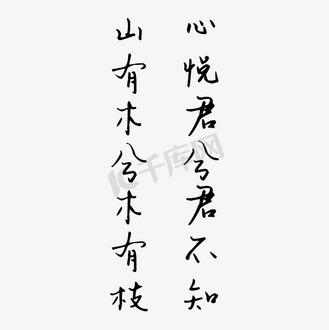 心悦君兮君不知
山有木兮木有枝
千库网